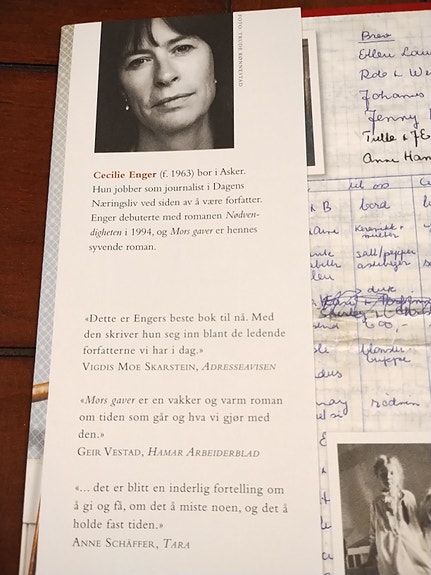 FOTO: TRUDE RØNNESTAD
Cecilie Enger (f. 1963) bor i Asker.
Hun jobber som journalist i Dagens
Næringsliv ved siden av å være forfatter.
Enger debuterte med romanen Nødven-
digheten i 1994, og Mors gaver er hennes
syvende roman.
«Dette er Engers beste bok til nå. Med
den skriver hun seg inn blant de ledende
forfatterne vi har i dag.»
VIGDIS MOE SKARSTEIN, ADRESSEAVISEN
«Mors gaver er en vakker og varm roman
om tiden som går og hva vi gjør med
den.»
GEIR VESTAD, HAMAR ARBEIDERBLAD
«... det er blitt en inderlig fortelling om
å gi og få, om det å miste noen, og det å
holde fast tiden.»
ANNE SCHÄFFER, TARA
Brev
Ellen
Johannes
Jenny
Tulle +
Anne
B bord
salt/pepper
duk
600,-